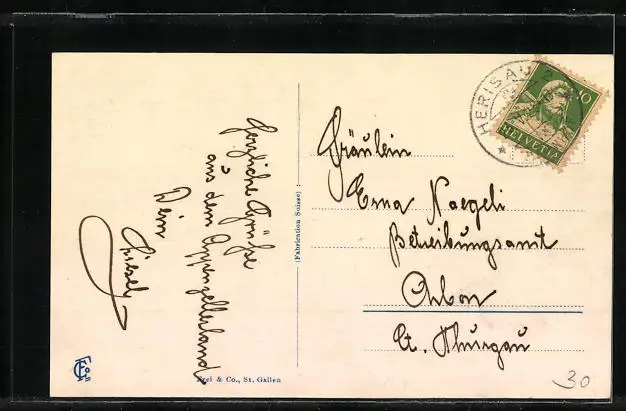 Herzliche Grüße
aus dem Appenzellerland
Dein
(Fabrication Suisse)
Frei & Co., St. Gallen
HERISAU 2
10
HELVETIA
Fräulein
Erna Naegeli
Betreibungsamt
Arbon
Ct. Thurgau
30